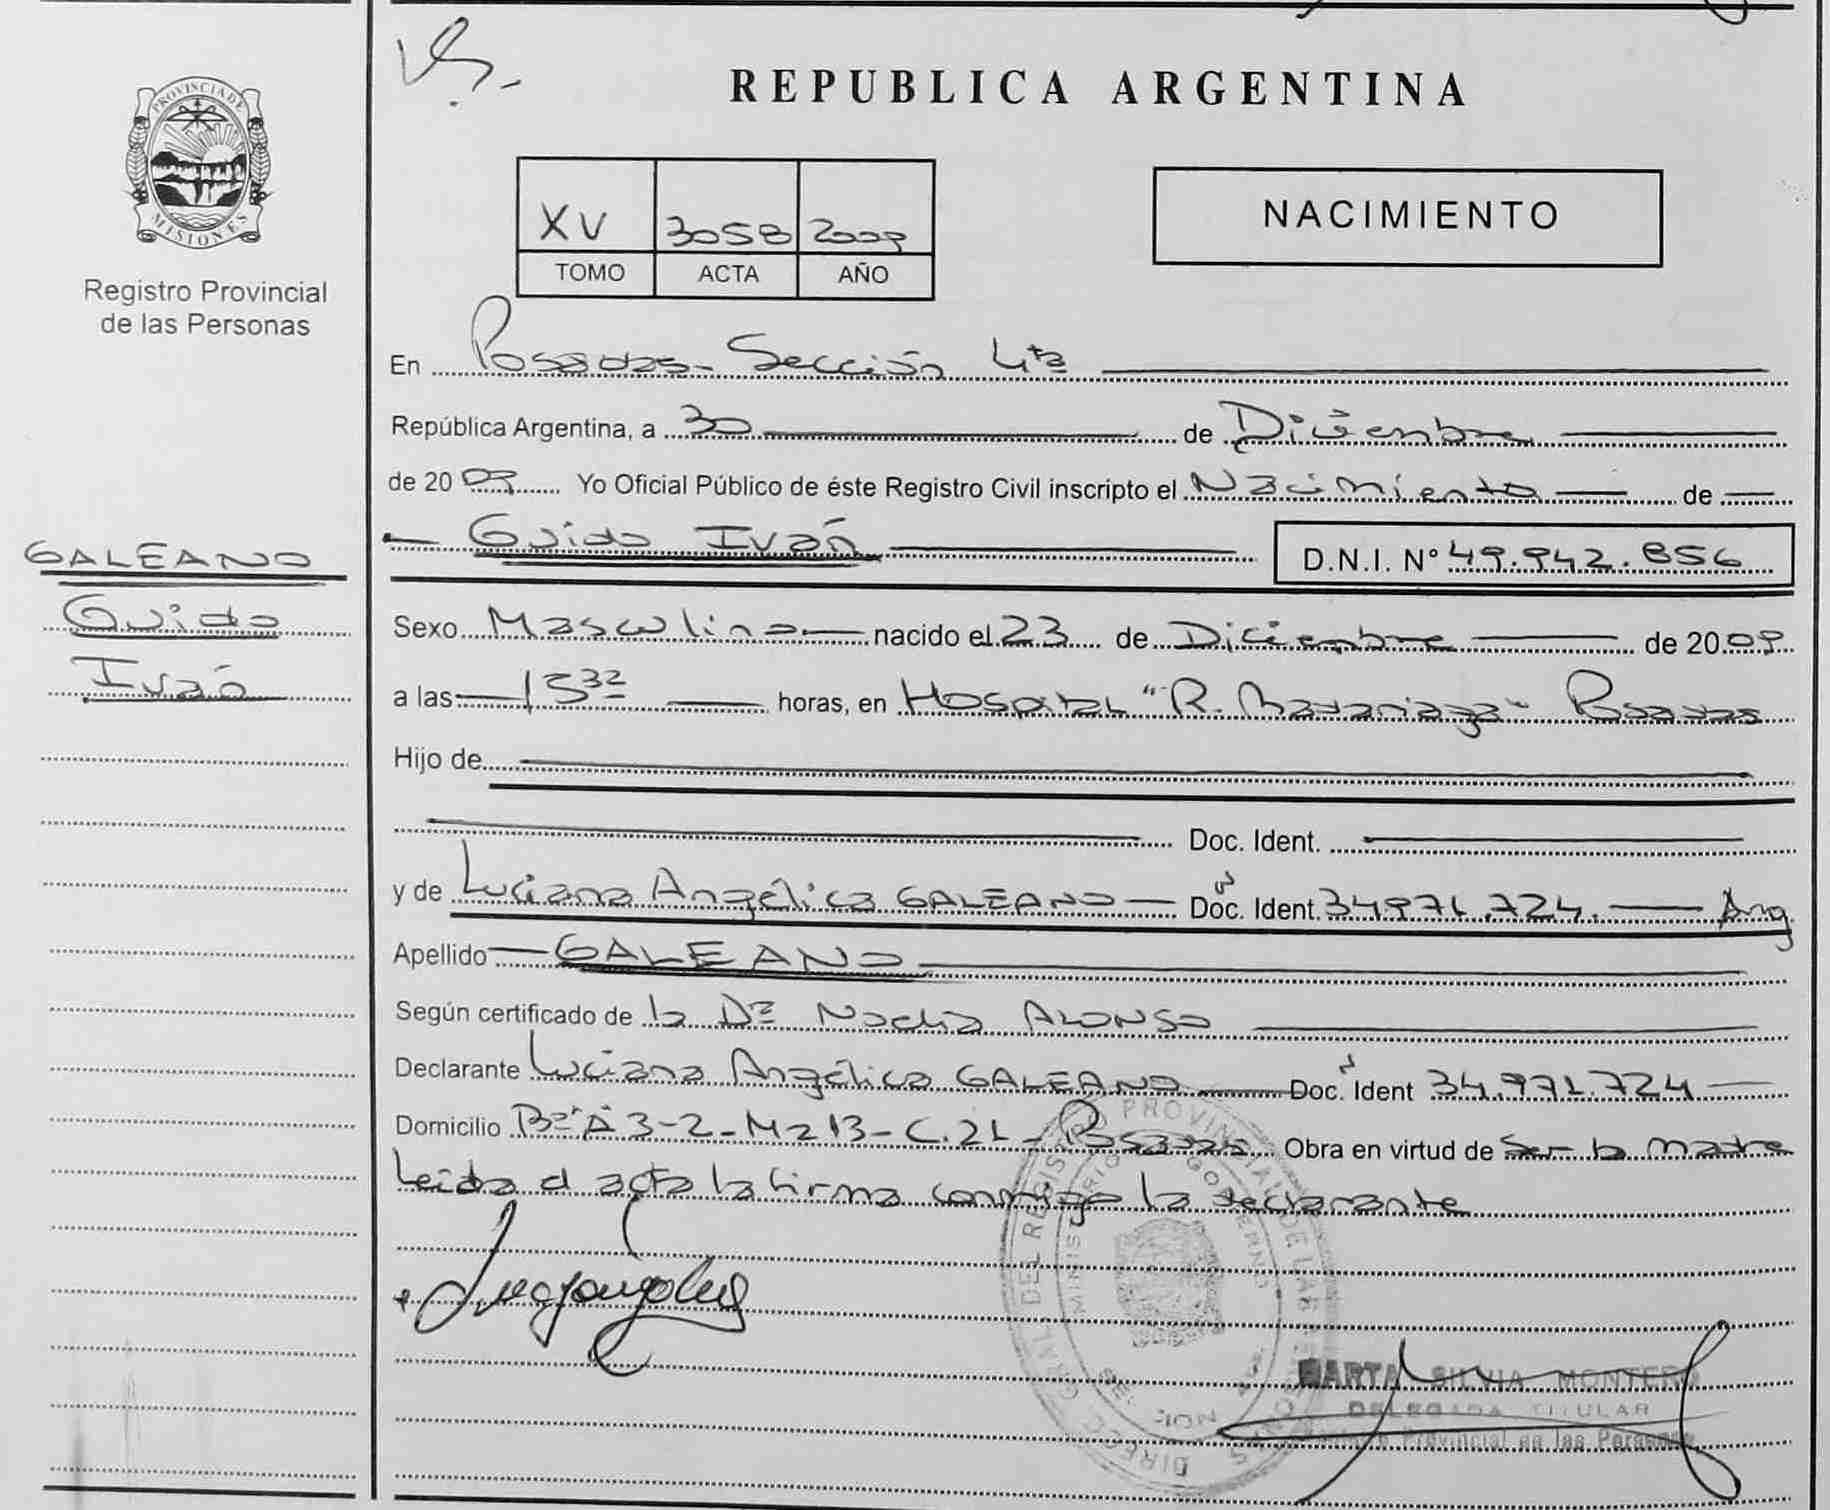 REPUBLICA ARGENTINA
PROVINCIA DE MISIONES
Registro Provincial
de las Personas
XV 3058 2009
TOMO ACTA AÑO
NACIMIENTO
En Posadas - Sección 4ta
República Argentina, a 30 de Diciembre
de 2009 Yo Oficial Público de éste Registro Civil inscripto el Nacimiento de
Guido Iván D.N.I. Nº 49.942.856
GALEANO
Guido
Iván
Sexo Masculino nacido el 23 de Diciembre de 2009
a las 15 32 horas, en Hospital "R. Madariaga" Posadas
Hijo de
Doc. Ident.
y de Luciana Angélica GALEANO Doc. Ident. 34971.724. Arg.
Apellido GALEANO
Según certificado de la Dra Noelia ALONSO
Declarante Luciana Angélica GALEANO Doc. Ident 34.971.724
Domicilio Bº A 3-2-Mz 13-C.21 - Posadas Obra en virtud de ser la madre
Leída el acta la firma conmigo la declarante
MARTA SILVIA MONTERO
DELEGADA TITULAR
Provincial de las Personas